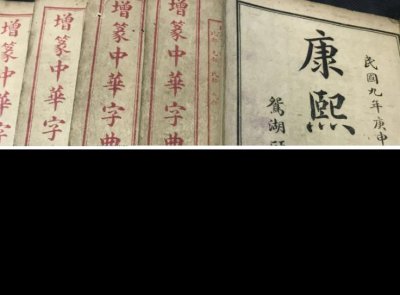 增篆中華字
增篆中華字
增篆中華字典
增篆中華字典
康熙
民國九年庚申
鴛湖